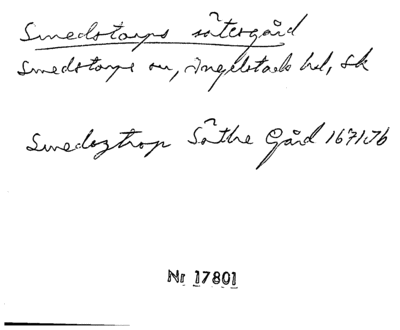 Smedstorps sätesgård
Smedstorps sn, Ingelstads hd, Sk
Smedsztrop Säthe Gård 1671 Jb
Nr 17801